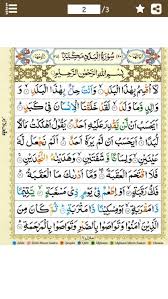 2 /3
سُوْرَةُ الْبَلَدِ مَكِّيَّةٌ
بِسْمِ اللهِ الرَّحْمٰنِ الرَّحِيْمِ
لَاۤ اُقْسِمُ بِهٰذَا الْبَلَدِ وَاَنْتَ حِلٌّۢ بِهٰذَا الْبَلَدِ
وَوَالِدٍ وَّمَا وَلَدَ لَقَدْ خَلَقْنَا الْاِنْسَانَ فِيْ كَبَدٍ
اَيَحْسَبُ اَنْ لَّنْ يَّقْدِرَ عَلَيْهِ اَحَدٌ يَقُوْلُ اَهْلَكْتُ مَالًا
لُّبَدًا اَيَحْسَبُ اَنْ لَّمْ يَرَهٗۤ اَحَدٌ اَلَمْ نَجْعَلْ لَّهٗ
عَيْنَيْنِ وَلِسَانًا وَّشَفَتَيْنِ وَهَدَيْنٰهُ النَّجْدَيْنِ
فَلَا اقْتَحَمَ الْعَقَبَةَ وَمَاۤ اَدْرٰىكَ مَا الْعَقَبَةُ فَكُّ
رَقَبَةٍ اَوْ اِطْعٰمٌ فِيْ يَوْمٍ ذِيْ مَسْغَبَةٍ يَّتِيْمًا
ذَا مَقْرَبَةٍ اَوْ مِسْكِيْنًا ذَا مَتْرَبَةٍ ثُمَّ كَانَ مِنَ
الَّذِيْنَ اٰمَنُوْا وَتَوَاصَوْا بِالصَّبْرِ وَتَوَاصَوْا بِالْمَرْحَمَةِ